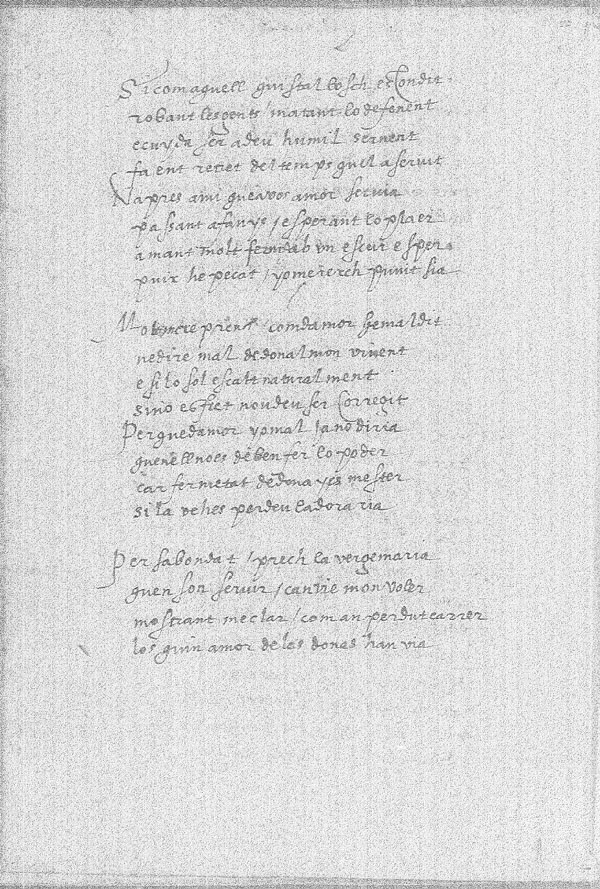 Si com aquell quista l bosch escondit
robant lesgents / matant lo defenent
ecuyda ser adeu humil servent
fa ent retret del temps quel aservit
Napres ami queavos amor servia
passant afanys / esperant lo plaer
amant molt ferm ab un escur esper
puix he pecat / yo mererch punit sia

No so mere prent com damor he maldit
nedire mal dedona l mon vivent
e si lo sol escalf naturalment
sino es fret nou deu ser Corregit
Perquedamor yo mal ja no diria
quen ell noes deben fer lo poder
car fermetat dedona yes mester
si la vehes perdeu la dora ria

Per sa bondat / prech la verge maria
quen son servir / canvie mon voler
mostrant me clar / com an perdut carrer
los quin amor de les dones han via